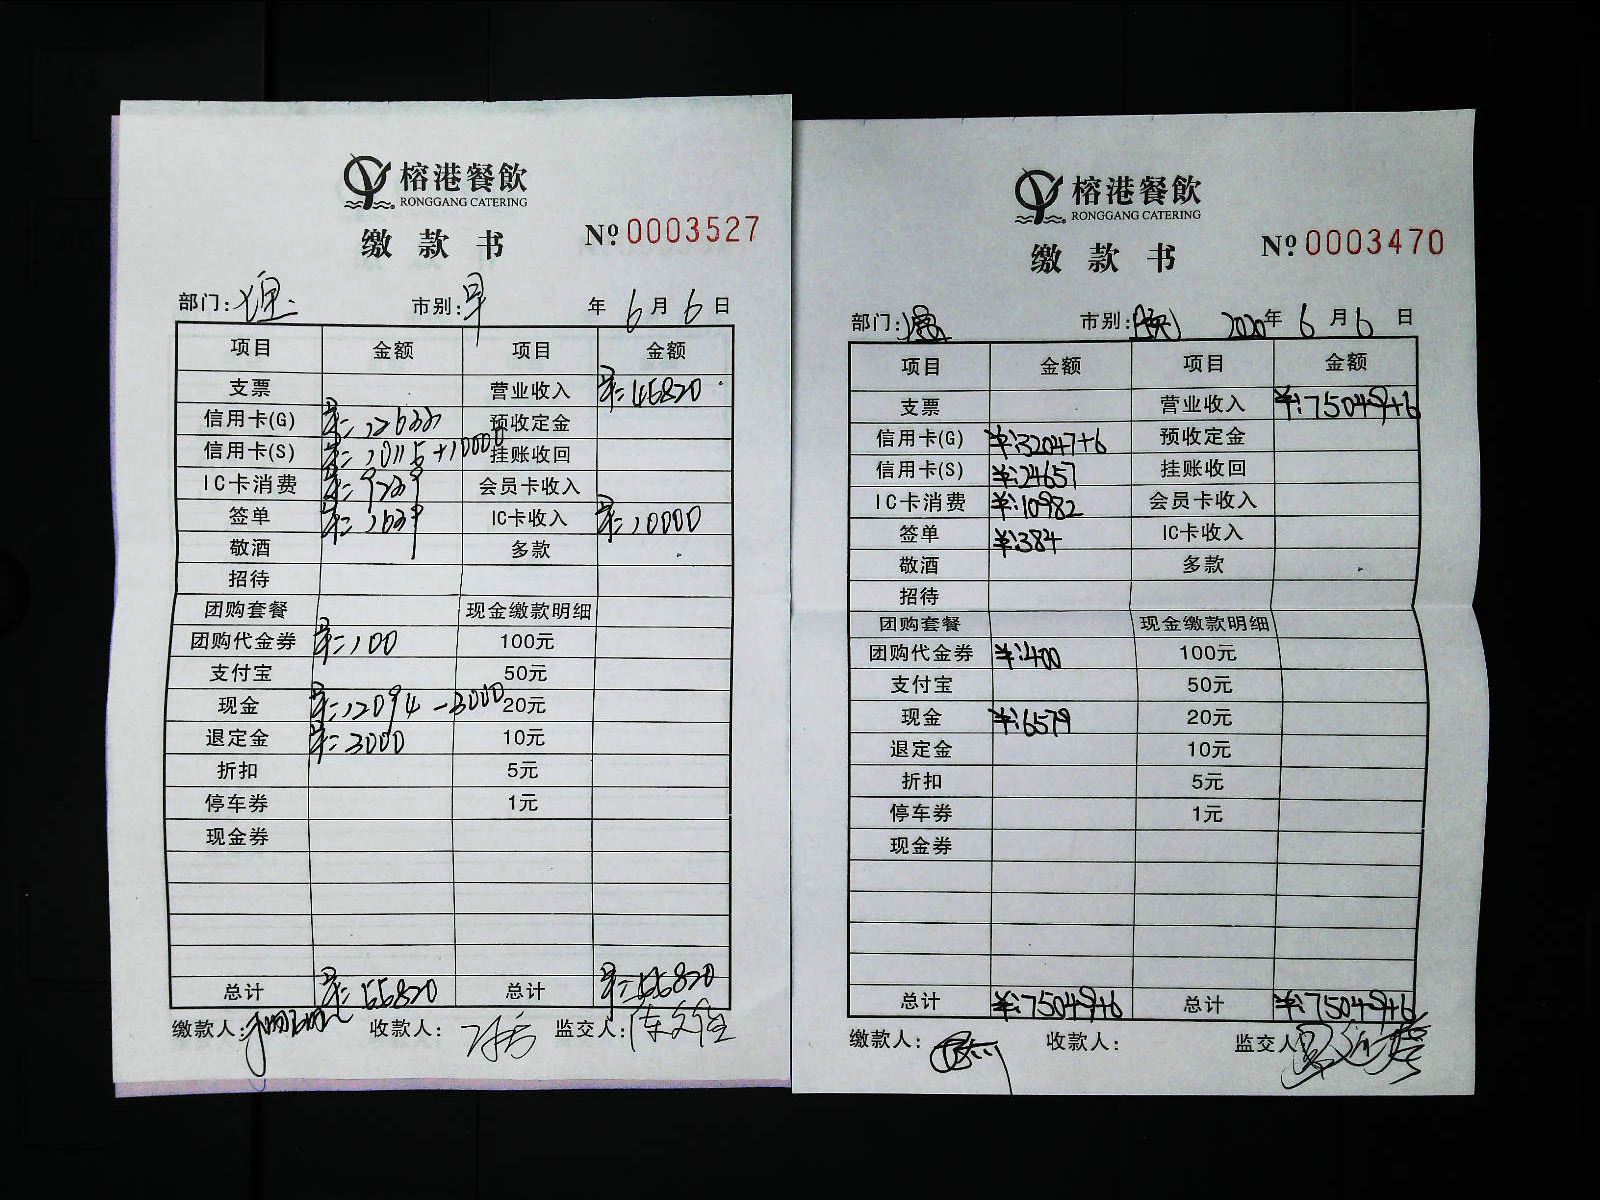 榕港餐飲
RONGGANG CATERING
缴款书
Nº 0003527
部门: 市别:早 年6月6日
项目 金额 项目 金额
支票 营业收入 ¥:46820
信用卡(G) 预收定金
信用卡(S) 挂账收回
IC卡消费 会员卡收入
签单 IC卡收入 ¥:10000
敬酒 多款
招待
团购套餐 现金缴款明细
团购代金券 ¥:100 100元
支付宝 50元
现金 ¥:12094-3000 20元
退定金 ¥:3000 10元
折扣 5元
停车券 1元
现金券
总计 ¥:56820 总计 ¥:56820
缴款人: 收款人: 监交人:
榕港餐飲
RONGGANG CATERING
缴款书
Nº 0003470
部门: 市别: 2020年6月6日
项目 金额 项目 金额
支票 营业收入 ¥:75049+6
信用卡(G) ¥:32047+6 预收定金
信用卡(S) ¥:24657 挂账收回
IC卡消费 ¥:10982 会员卡收入
签单 ¥:384 IC卡收入
敬酒 多款
招待
团购套餐 现金缴款明细
团购代金券 ¥:400 100元
支付宝 50元
现金 ¥:6579 20元
退定金 10元
折扣 5元
停车券 1元
现金券
总计 ¥:75049+6 总计 ¥:75049+6
缴款人: 收款人: 监交人